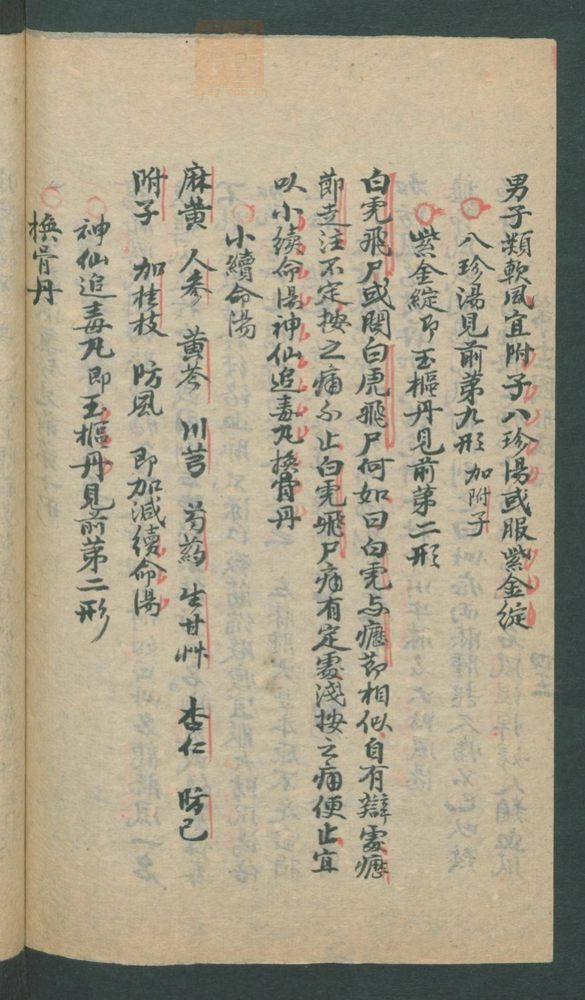 男子類軟風宜附子八珍湯或服紫金綻
八珍湯見前第九形 加附子
紫金綻即玉樞丹見前第二形
白虎飛尸或問白虎飛尸何如曰白虎与癧節相似自有辯處癧
節走注不定按之痛不止白虎飛尸痛有定處淺按之痛便止宜
以小續命湯神仙追毒丸換骨丹
小續命湯
麻黄 人参 黄芩 川芎 芍药 生甘艸 杏仁 防己
附子 加桂枝 防風 即加減續命湯
神仙追毒丸即玉樞丹見前第二形
換骨丹